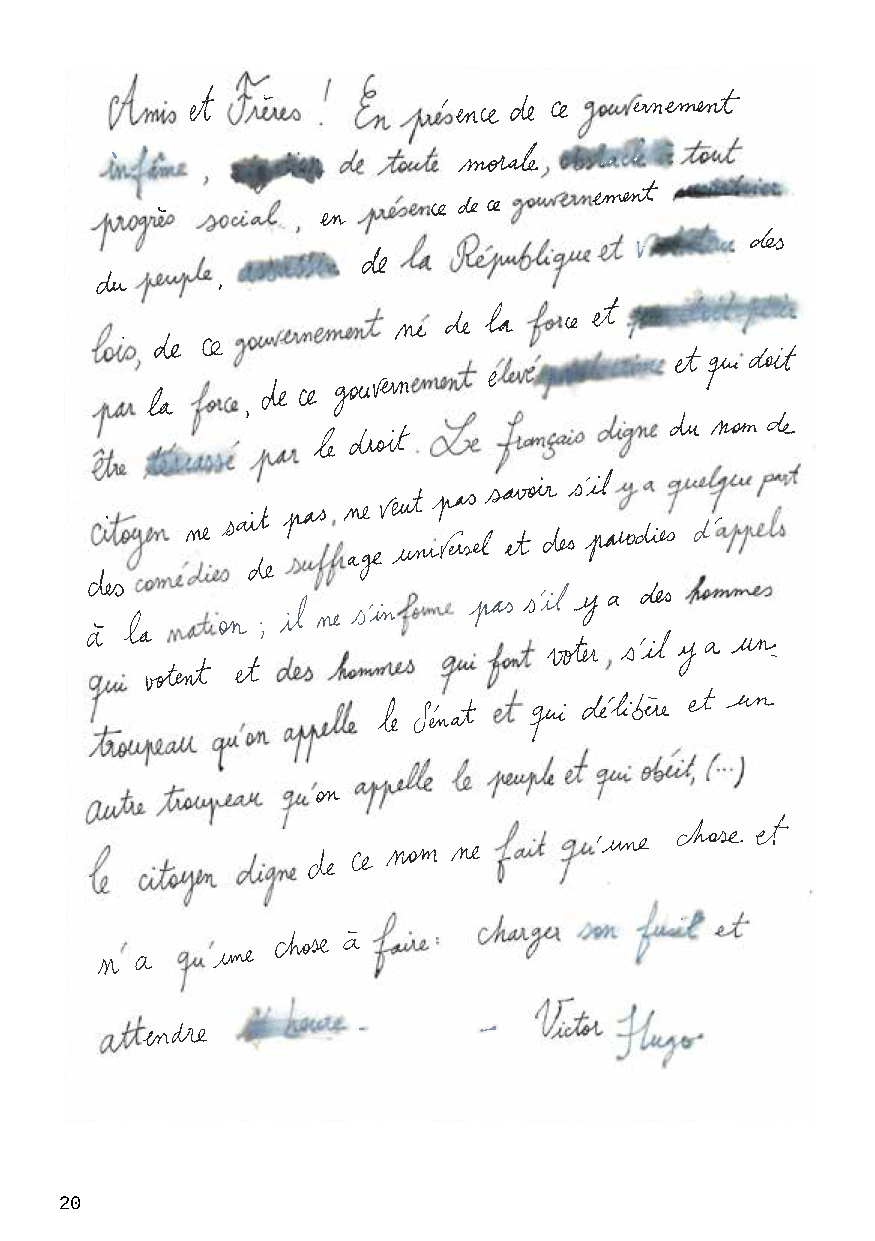 Amis et Frères ! En présence de ce gouvernement
infâme, de toute morale, obstacle à tout
progrès social, en présence de ce gouvernement
du peuple, assassin de la République et des
lois, de ce gouvernement né de la force et
par la force, de ce gouvernement élevé et qui doit
être térassé par le droit. Le français digne du nom de
citoyen ne sait pas, ne veut pas savoir s'il y a quelque part
des comédies de suffrage universel et des parodies d'appels
à la nation ; il ne s'informe pas s'il y a des hommes
qui votent et des hommes qui font voter, s'il y a un
troupeau qu'on appelle le Sénat et qui délibère et un
autre troupeau qu'on appelle le peuple et qui obéit, (...)
le citoyen digne de ce nom ne fait qu'une chose et
n'a qu'une chose à faire : charger son fusil et
attendre heure. - Victor Hugo
20